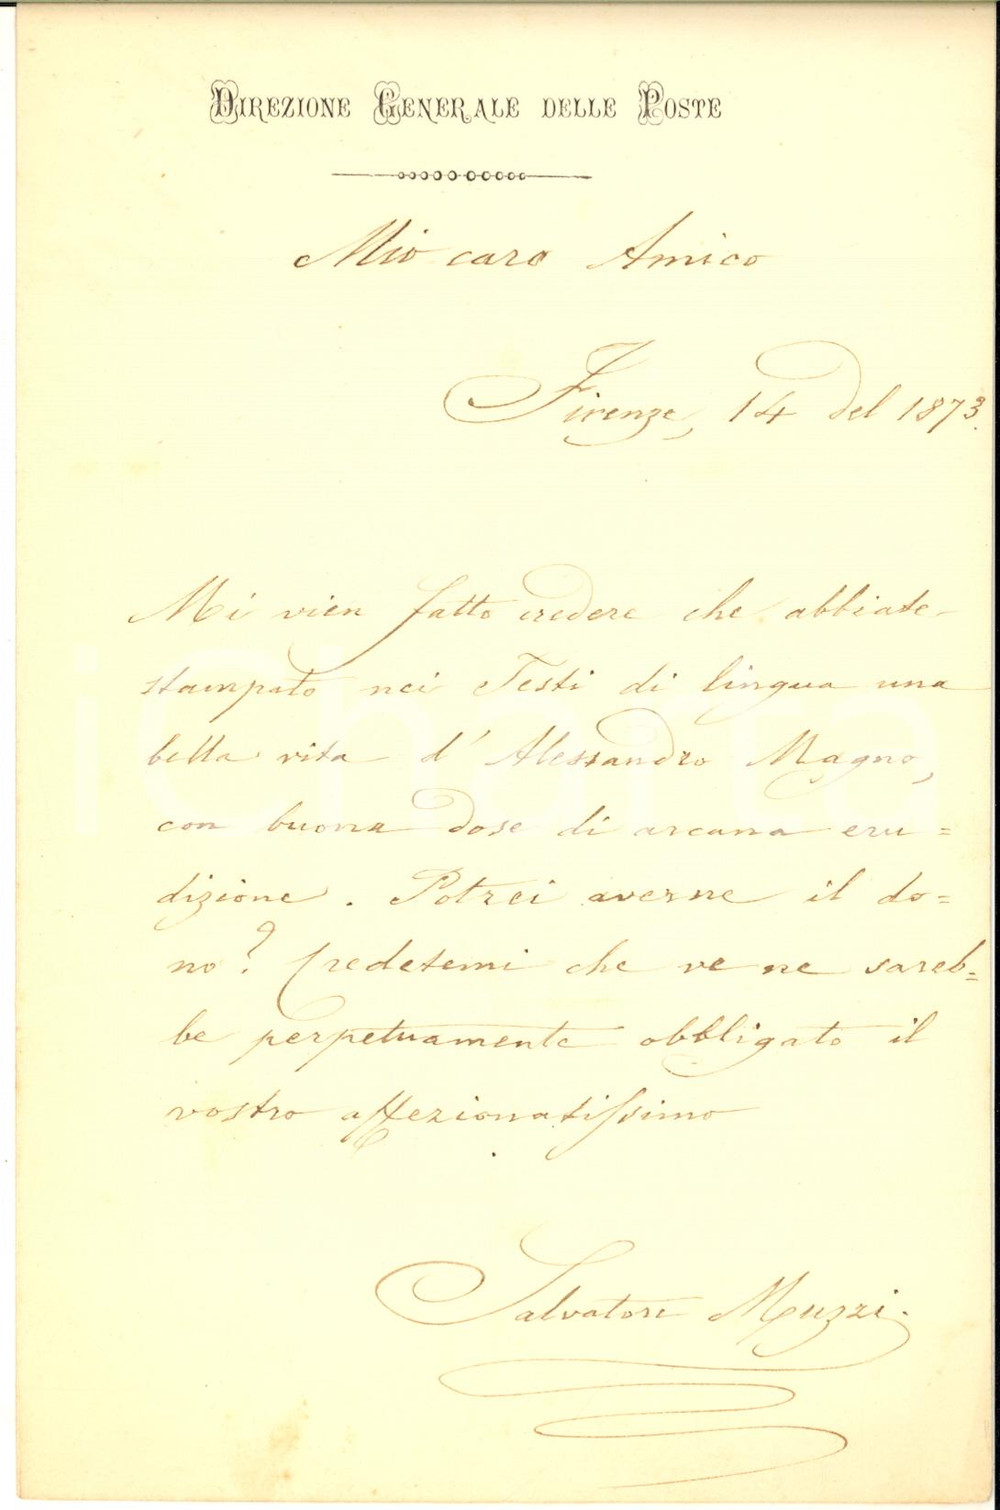 Direzione Generale delle Poste
Mio caro Amico
Firenze, 14 del 1873.
Mi vien fatto credere che abbiate
stampato nei Testi di lingua una
bella vita d' Alessandro Magno,
con buona dose di arcana eru=
dizione. Potrei averne il do=
no? Credetemi che ve ne sareb=
be perpetuamente obbligato il
vostro affezionatissimo
Salvatore Muzzi.